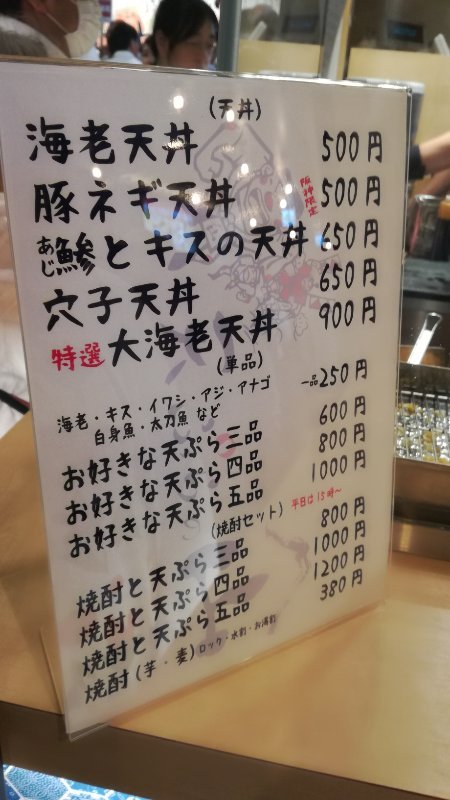 (天丼)
海老天丼 500円
豚ネギ天丼 阪神限定 500円
あじ鯵とキスの天丼 650円
穴子天丼 650円
特選大海老天丼 900円
(単品)
海老・キス・イワシ・アジ・アナゴ 一品250円
白身魚・太刀魚 など
お好きな天ぷら三品 600円
お好きな天ぷら四品 800円
お好きな天ぷら五品 1000円
(焼酎セット) 平日は15時〜
焼酎と天ぷら三品 800円
焼酎と天ぷら四品 1000円
焼酎と天ぷら五品 1200円
焼酎(芋・麦)ロック・水割・お湯割 380円